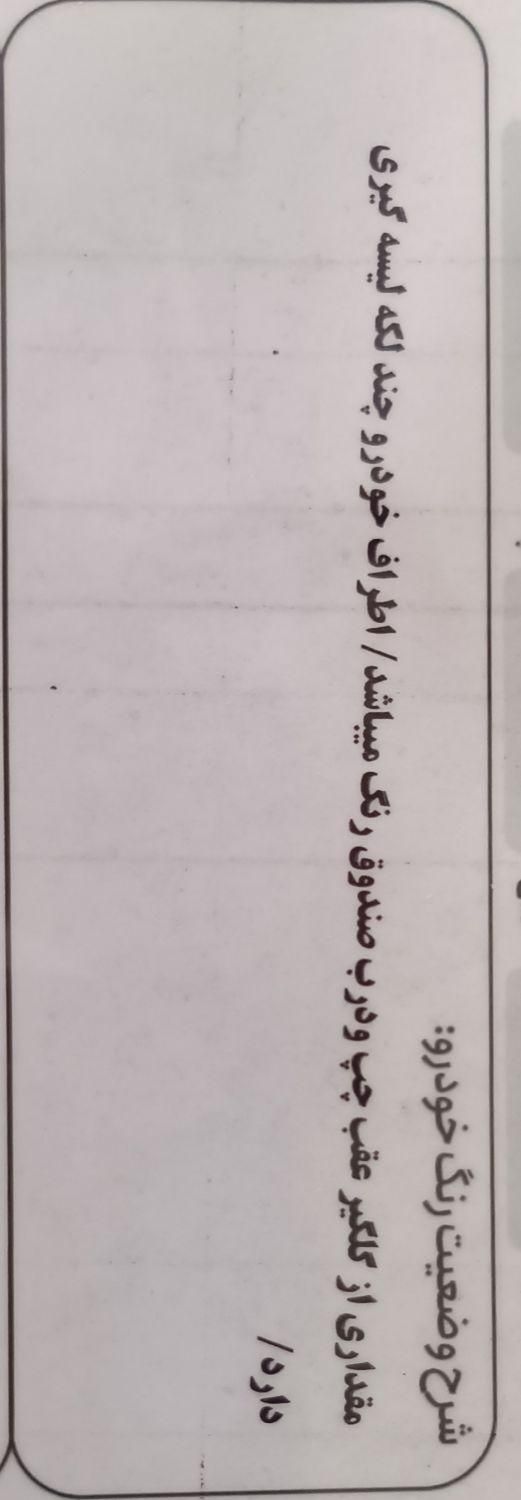 شرح وضعیت رنگ خودرو:
مقداری از گلگیر عقب چپ و درب صندوق رنگ میباشد/ اطراف خودرو چند لکه لیسه گیری
دارد/